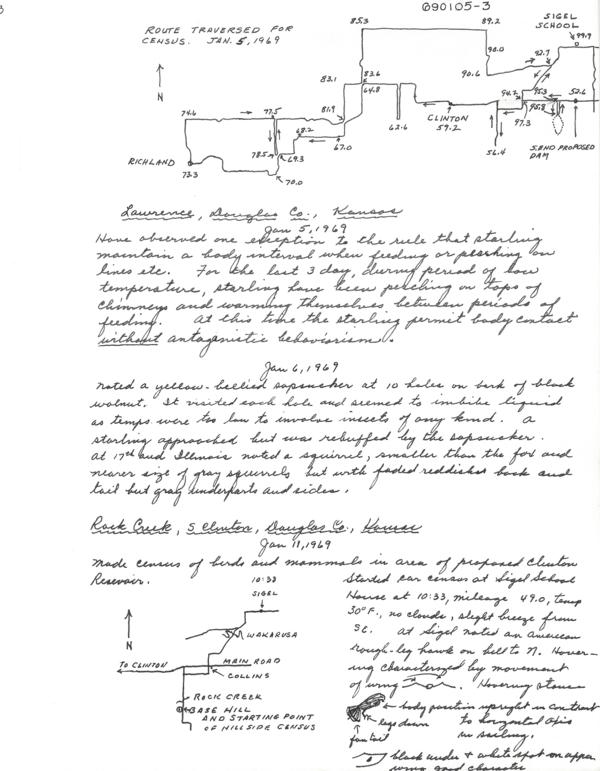 690105-3
ROUTE TRAVERSED FOR
CENSUS. JAN. 5, 1969
N
85.3
89.2
SIGEL
SCHOOL
99.9
90.0
92.7
83.1
83.6
64.8
90.6
94.2
95.3
52.6
95.8
74.6
77.5
81.9
68.2
67.0
62.6
CLINTON
59.2
97.3
56.4
S. END PROPOSED
DAM
RICHLAND
73.3
78.5
69.3
70.0
Lawrence, Douglas Co., Kansas
Jan 5, 1969
Have observed one exception to the rule that starling
maintain a body interval when feeding or perching on
lines etc. For the last 3 day, during period of low
temperature, starling have been perching on tops of
chimneys and warming themselves between periods of
feeding. At this time the starling permit body contact
without antagonistic behaviorism.
Jan 6, 1969
Noted a yellow-bellied sapsucker at 10 holes on bark of black
walnut. It visited each hole and seemed to imbibe liquid
as temps were too low to involve insects of any kind. A
starling approached but was rebuffed by the sapsucker.
At 17th and Illinois noted a squirrel, smaller than the fox and
nearer size of gray squirrels but with faded reddish back and
tail but gray underparts and sides.
Rock Creek, S Clinton, Douglas Co., Kansas
Jan 11, 1969
Made census of birds and mammals in area of proposed Clinton
Reservoir.
10:33
SIGEL
N
WAKARUSA
TO CLINTON
MAIN ROAD
COLLINS
ROCK CREEK
BASE HILL
AND STARTING POINT
OF HILLSIDE CENSUS
Started car census at Sigel School
House at 10:33, mileage 49.0, temp
30°F., no clouds, slight breeze from
SE. At Sigel noted an American
rough-leg hawk on hill to N. Hover-
ing characterized by movement
of wing. Hovering stance
body position upright in contrast
legs down to horizontal axis
fan tail in sailing.
black under + white spot on upper
wing good character